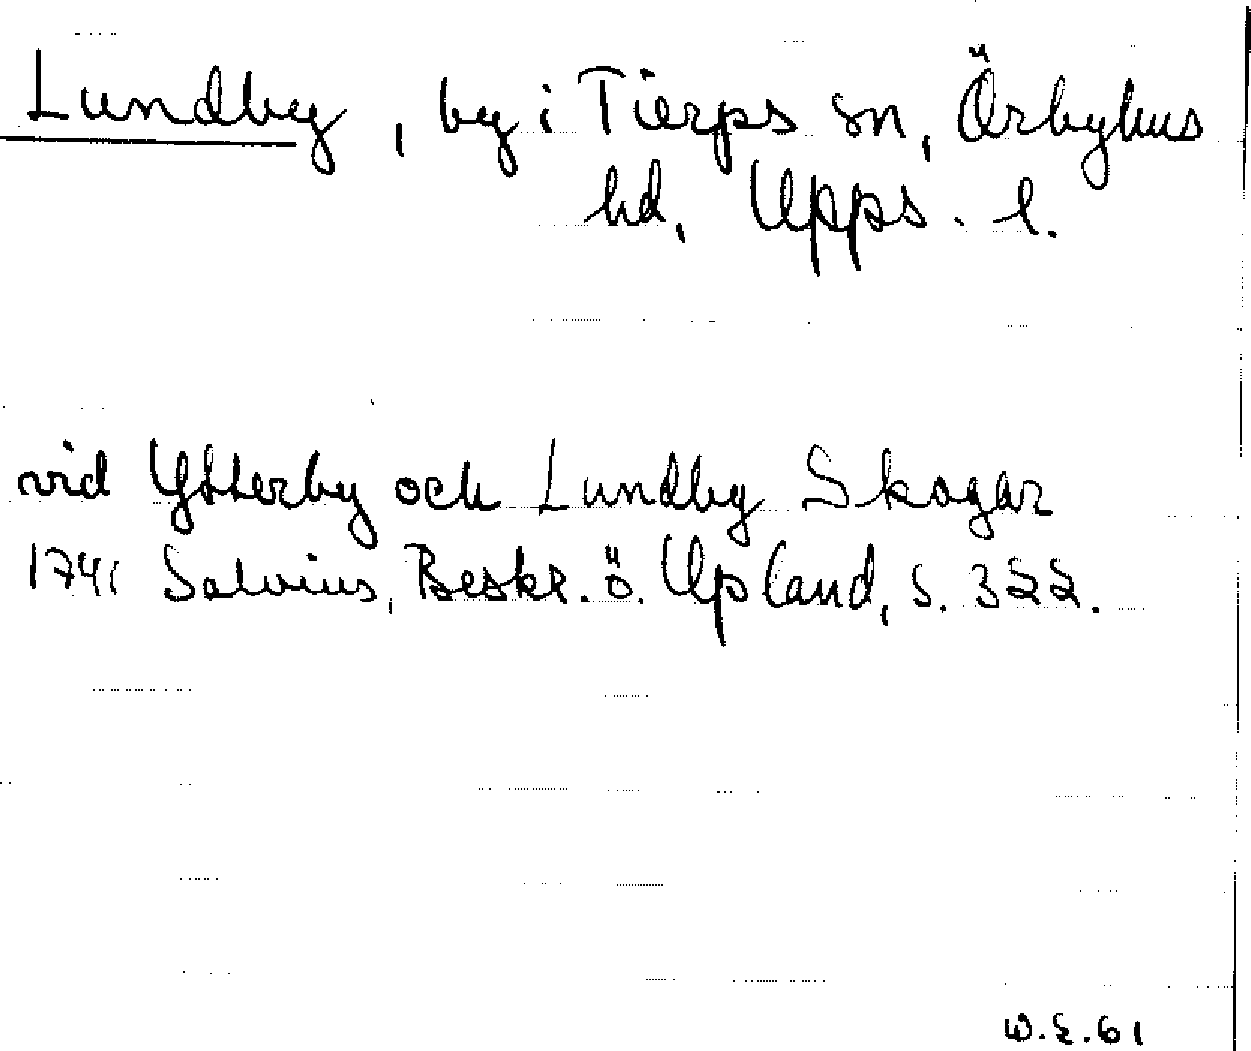 Lundby, by i Tierps sn, Örbyhus
hd, Upps. l.
vid Ytterby och Lundby Skogar
1741 Salvius, Beskr. ö. Upland, s. 322.
W.E.61